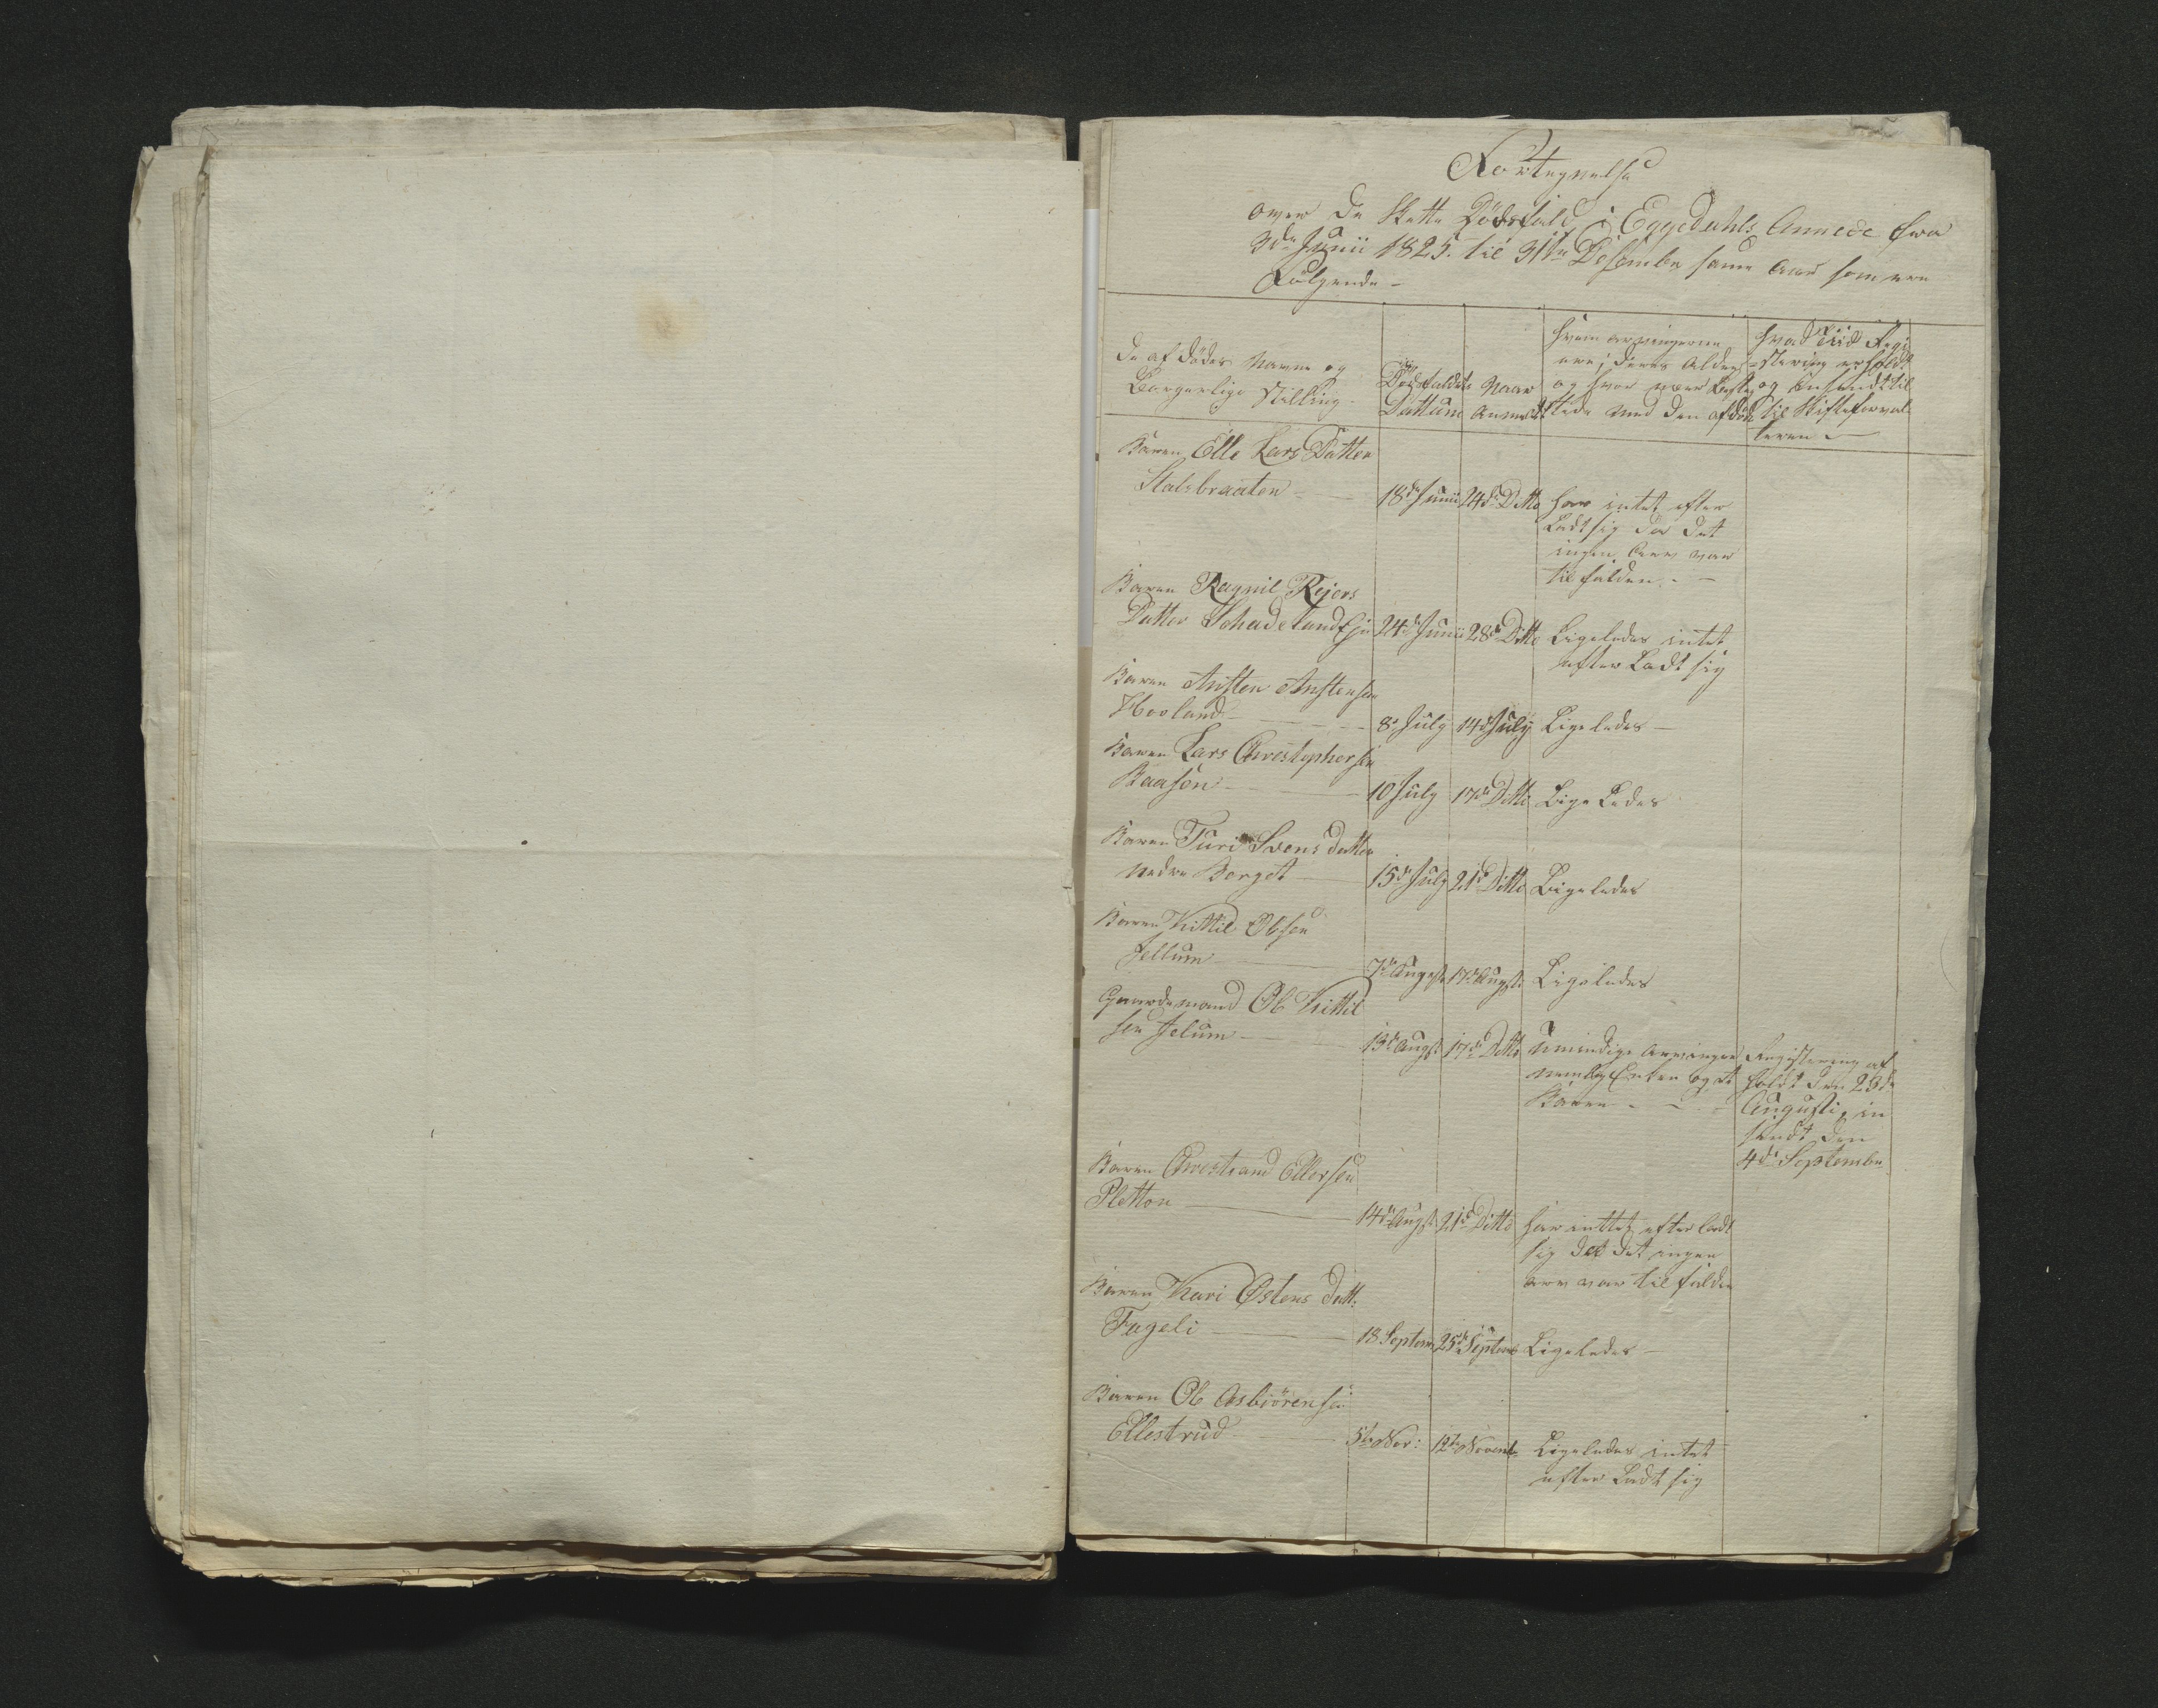 Fortegnelse
over de skette Dödsfald i Eggedahls Annece fra
3de Junii 1825. til 31te Desember samme Aar som ere
Fölgende -
De af dödes Navne og
Borgerlige Stilling -
Dödsfaldets
Dattum
Naar
Anmeldt
Hvem arvingerne
ere; deres Alder
og hvor nær Beslæg
tede med den afdöde
Hvad Tiid Regi
stering er holdt
og Insendt til
til Skifteforval
teren -
Baren Elle Lars Datter
Stalsbraaten - 18de Junii 24de Ditto Har intet efter
Ladt sig da det
ingen Arv var
tilfalden. -
Baren Ragnil Rejers
Datter Schadeland Eje 24de Junii 28de Ditto Ligeledes intet
efter Ladt sig
Baren Austen Austensen
Hovland - 8de July 14de July Ligeledes -
Baren Lars Christophersen
Baason - 10 July 17de Ditto Lige Ledes
Baren Turi Svens datter
nedre Berget - 15de July 21de Ditto Ligeledes
Baren Kittil Olsen
Jellum - 7de Augst 17de Augst Ligeledes
Gaardemand Ole Kittil
sen Jelum - 13de Augst 17de Ditto Umindige Arvinger
nemlig Enken og et
Baren - -
Registering af
holdt den 23de
Augusti, in
sendt den
4de September
Baren Christand Ellefsen
Pletton - 14de Augst 21de Ditto Har inttet efter ladt
sig det det ingen
arv var tilfalden
Baren Kari Østens datt:
Fageli - 18 Septem 25de Septem Ligeledes -
Baren Ole Asbiörensen
Ellestrud - 5te Nov: 12te Novemb Ligeledes intet
efter Ladt sig